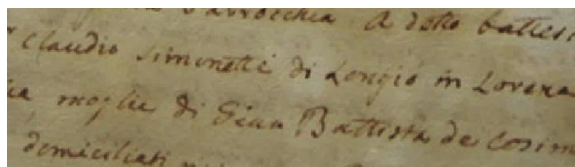 Parrocchia A detto battesi
Claudio Simonetti di Longio in Lorena
moglie di Gian Battista de Cosim
domiciliati